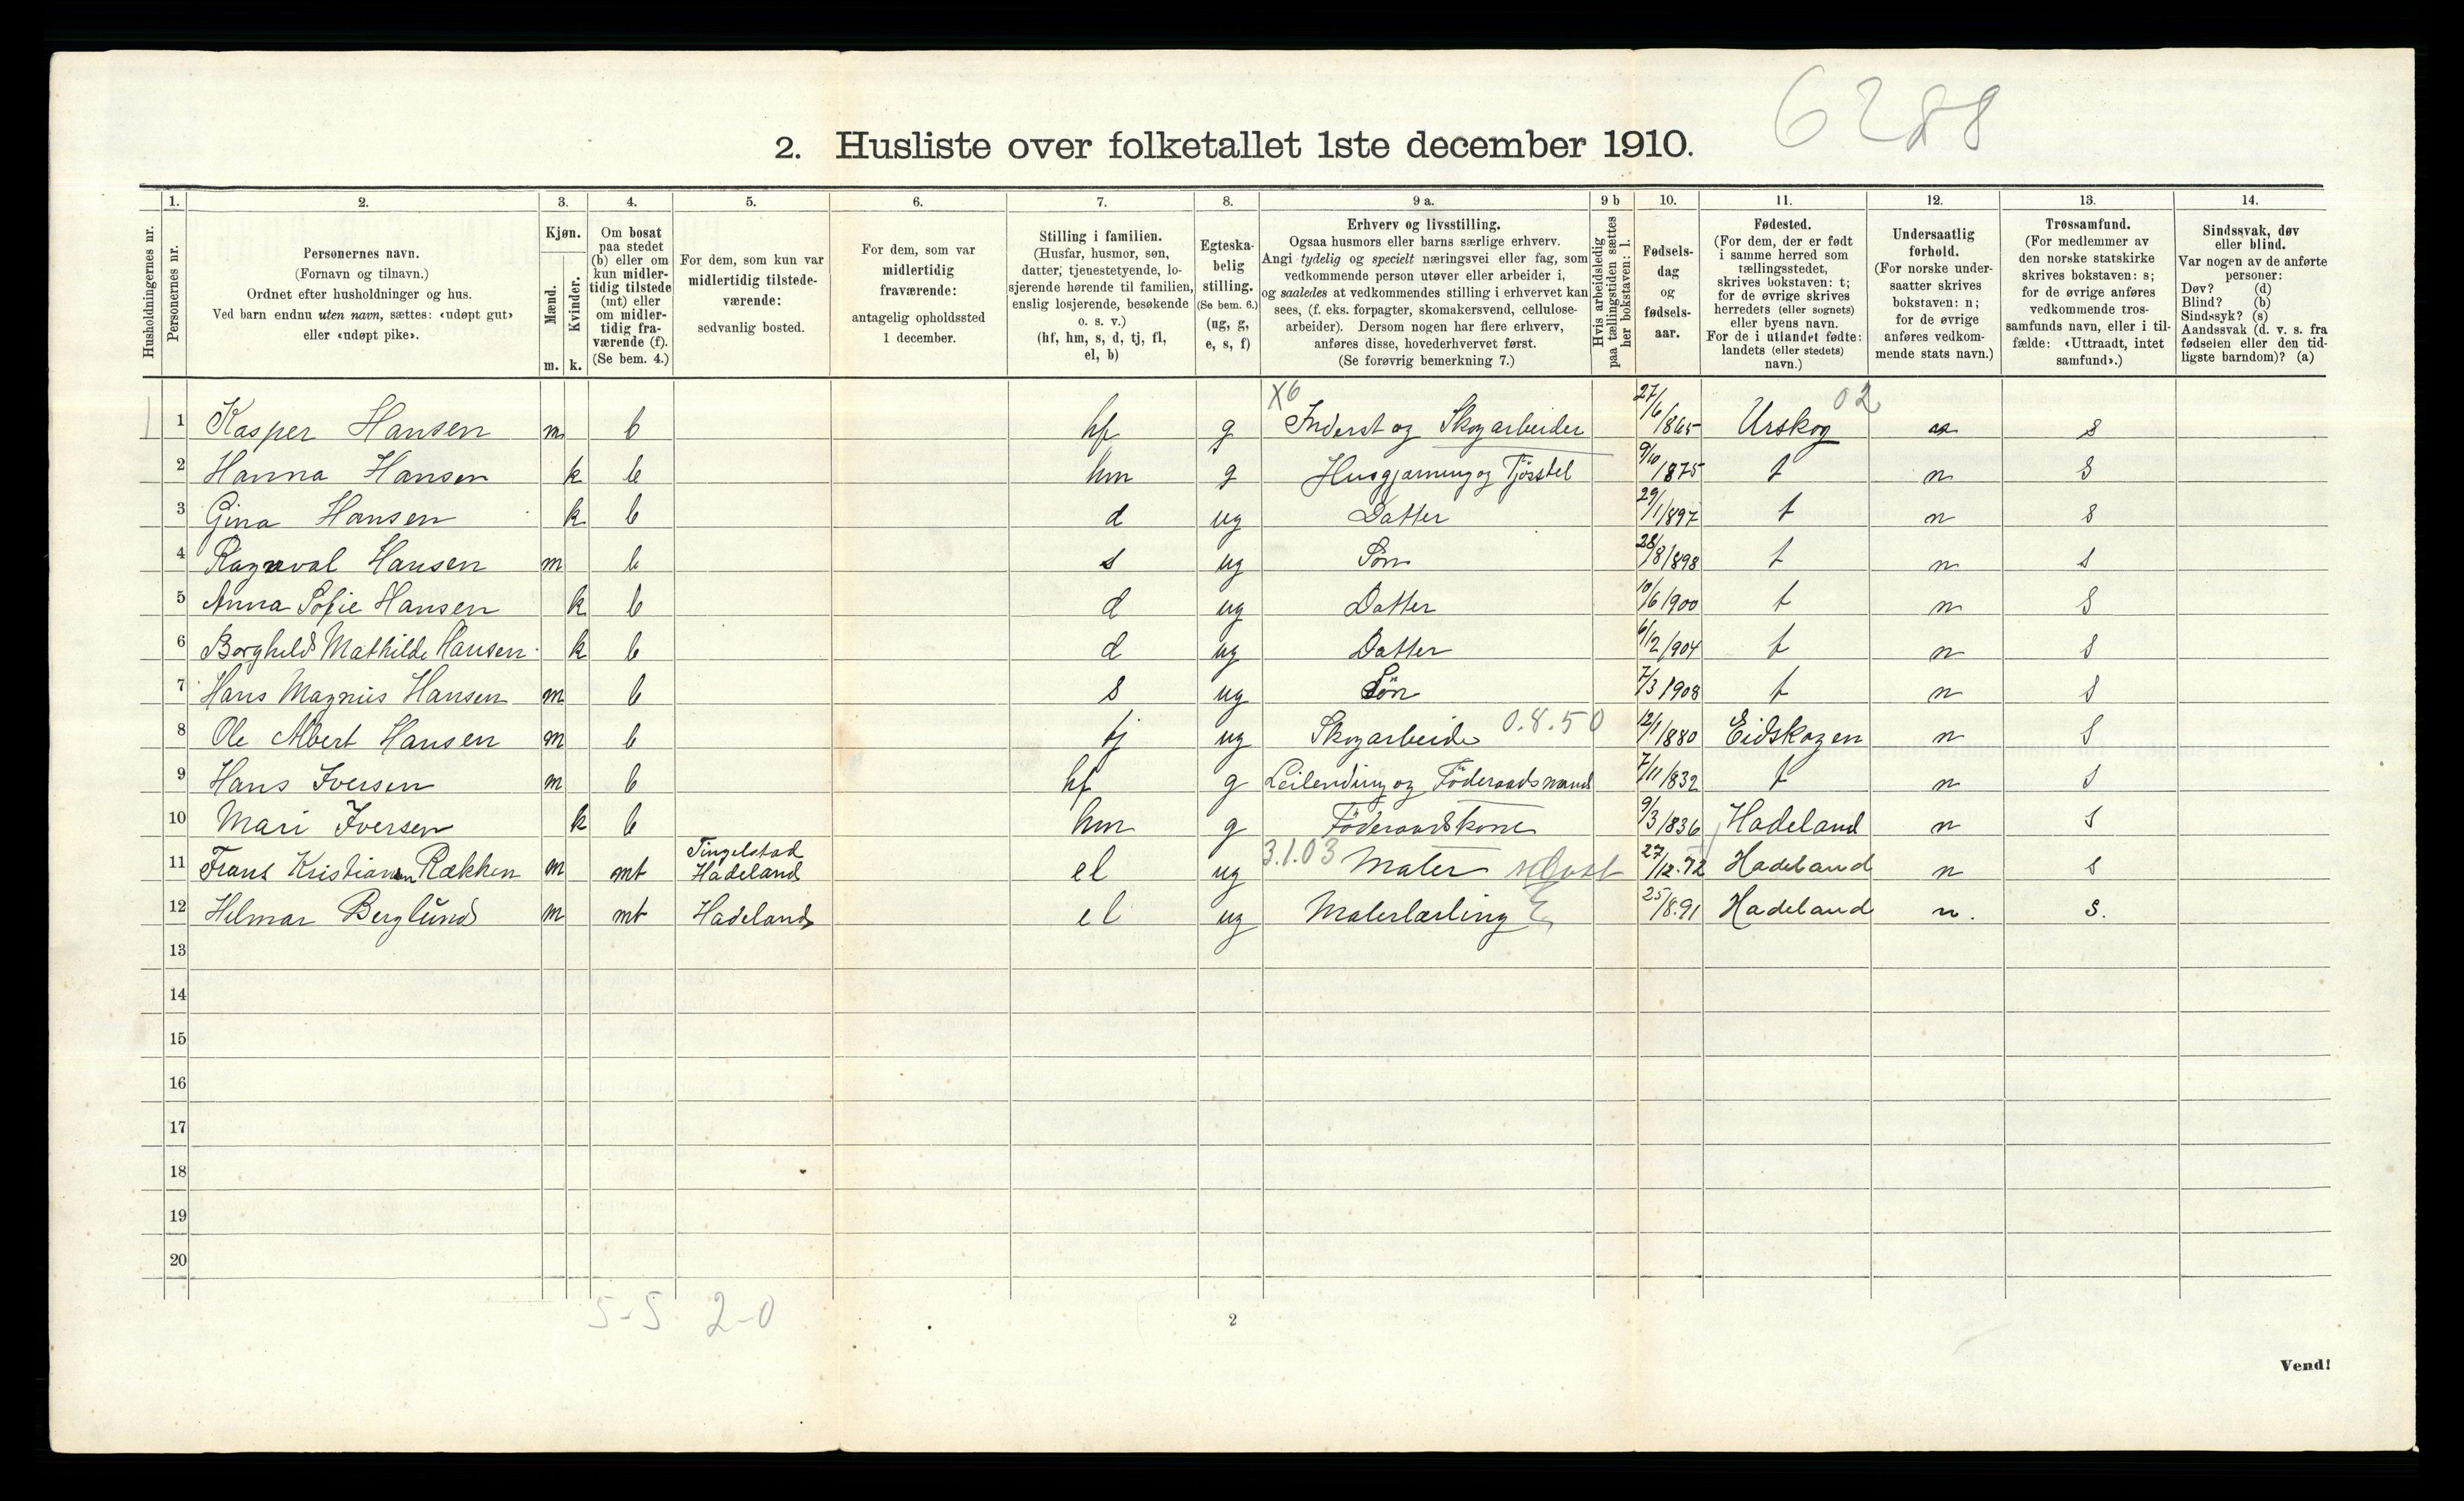 6288
2. Husliste over folketallet 1ste december 1910.
1. 2. 3. 4. 5. 6. 7. 8. 9 a. 9 b 10. 11. 12. 13. 14.
Husholdningernes nr.
Personernes nr.
Personernes navn.
(Fornavn og tilnavn.)
Ordnet efter husholdninger og hus.
Ved barn endnu uten navn, sættes: «udøpt gut»
eller «udøpt pike».
Kjøn.
Mænd.
Kvinder.
m. k.
Om bosat
paa stedet
(b) eller om
kun midler-
tidig tilstede
(mt) eller
om midler-
tidig fra-
værende (f).
(Se bem. 4.)
For dem, som kun var
midlertidig tilstede-
værende:
sedvanlig bosted.
For dem, som var
midlertidig
fraværende:
antagelig opholdssted
1 december.
Stilling i familien.
(Husfar, husmor, søn,
datter, tjenestetyende, lo-
sjerende hørende til familien,
enslig losjerende, besøkende
o. s. v.)
(hf, hm, s, d, tj, fl,
el, b)
Egteska-
belig
stilling.
(Se bem. 6.)
(ug, g,
e, s, f)
Erhverv og livsstilling.
Ogsaa husmors eller barns særlige erhverv.
Angi tydelig og specielt næringsvei eller fag, som
vedkommende person utøver eller arbeider i,
og saaledes at vedkommendes stilling i erhvervet kan
sees, (f. eks. forpagter, skomakersvend, cellulose-
arbeider). Dersom nogen har flere erhverv,
anføres disse, hovederhvervet først.
(Se forøvrig bemerkning 7.)
Hvis arbeidsledig
paa tællingstiden sættes
her bokstaven: l.
Fødsels-
dag
og
fødsels-
aar.
Fødested.
(For dem, der er født
i samme herred som
tællingsstedet,
skrives bokstaven: t;
for de øvrige skrives
herredets (eller sognets)
eller byens navn.
For de i utlandet fødte:
landets (eller stedets)
navn.)
Undersaatlig
forhold.
(For norske under-
saatter skrives
bokstaven: n;
for de øvrige
anføres vedkom-
mende stats navn.)
Trossamfund.
(For medlemmer av
den norske statskirke
skrives bokstaven: s;
for de øvrige anføres
vedkommende tros-
samfunds navn, eller i til-
fælde: «Uttraadt, intet
samfund».)
Sindssvak, døv
eller blind.
Var nogen av de anførte
personer:
Døv? (d)
Blind? (b)
Sindssyk? (s)
Aandssvak (d. v. s. fra
fødselen eller den tid-
ligste barndom)? (a)
X6 02
1 Kasper Hansen m b hf g Inderst og Skogarbeider 27/6/865 Urskog n s
2 Hanna Hansen k b hm g Husgjærning og Fjösstel 9/10/875 t n s
3 Gina Hansen k b d ug Datter 29/1/897 t n s
4 Ragnval Hansen m b s ug Sön 28/8/898 t n s
5 Anna Sofie Hansen k b d ug Datter 10/6/900 t n s
6 Borghild Mathilde Hansen k b d ug Datter 6/2/904 t n s
7 Hans Magnus Hansen m b s ug Sön 7/3/908 t n s
8 Ole Albert Hansen m b tj ug Skogarbeide 0.8.50 12/1/880 Eidskogen n s
9 Hans Iversen m b hf g Leilending og Föderaadsmand 7/11/832 t n s
10 Mari Iversen k b hm g Föderaadskone 9/3/836 Hadeland n s
11 Frans Kristiansen Rækken m mt Tingelstad Hadeland el ug 3.1.03 Maler 27/12.72 Hadeland n s
12 Helmar Berglund m mt Hadeland el ug Malerlærling 25/8.91 Hadeland n. s.
13
14
15
16
17
18
19
20
5-5 2-0
2
Vend!